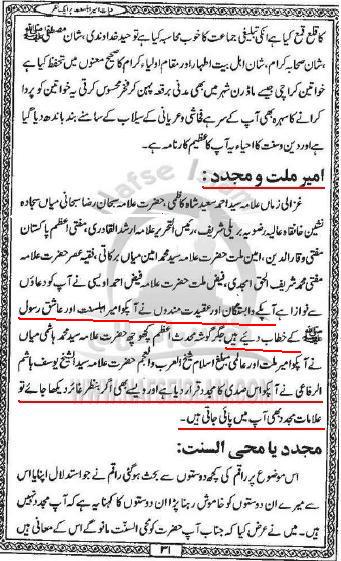 کا قلع قمع کیا ہے انکی تبلیغی جماعت کا خوب محاسبہ کیا ہے توحید خداوندی، شان مصطفیٰ ﷺ
شان صحابہ کرام، شان اہل بیت اطہار اور مقام اولیاء کرام کا صحیح معنوں میں تحفظ کیا ہے
خواتین کراچی جیسے ماڈرن شہر میں بھی مدنی برقعہ پہن کر فخر محسوس کرتی ہیں خواتین کو پردا
کرانے کا سہرہ بھی آپ کے سر ہے فحاشی و عریانی کے سیلاب کے سامنے بند باندھ دیا گیا
ہے اور دین و سنت کا احیاء یہ آپ کا عظیم کارنامہ ہے۔
امیر ملت و مجدد:
غزالی زماں علامہ سید احمد سعید شاہ کاظمی، حضرت علامہ سبحان رضا سبحانی میاں سجادہ
نشین خانقاہ عالیہ رضویہ بریلی شریف، رئیس التحریر علامہ ارشد القادری مفتی اعظم پاکستان
مفتی وقار الدین، امین ملت حضرت علامہ سید محمد امین میاں برکاتی، فقیہ عصر حضرت علامہ
مفتی محمد شریف الحق امجدی، فیض ملت حضرت علامہ فیض احمد اویسی نے آپ کو دعاؤں
سے نوازا ہے آپکے وابستگان اور عقیدت مندوں نے آپکو امیر اہلسنت اور عاشق رسول
ﷺ کے خطاب دیئے ہیں جگر گوشہ محدث اعظم کچھوچھ حضرت علامہ سید محمد ہاشمی میاں
نے آپکو امیر ملت اور عالمی مبلغ اسلام شیخ العرب والعجم حضرت علامہ سید الشیخ یوسف ہاشم
الرفاعی نے آپکو اس صدی کا مجدد قرار دیا ہے اور ویسے بھی اگر بنظر غائر دیکھا جائے تو
علامات مجدد بھی آپ میں پائی جاتی ہیں۔
مجدد یا محی السنت:
اس موضوع پر راقم کی کچھ دوستوں سے بحث ہو گئی راقم نے جو استدلال اپنایا اس
سے میرے ان دوستوں کو خاموش رہنا پڑا ان دوستوں کا کہنا ہے کہ آپ مجدد نہیں
ہیں۔ میں نے عرض کیا کہ جناب آپ حضرت کو محی السنّت مانو گے اس کے معانی ہیں
۳۱
Nafse Islam